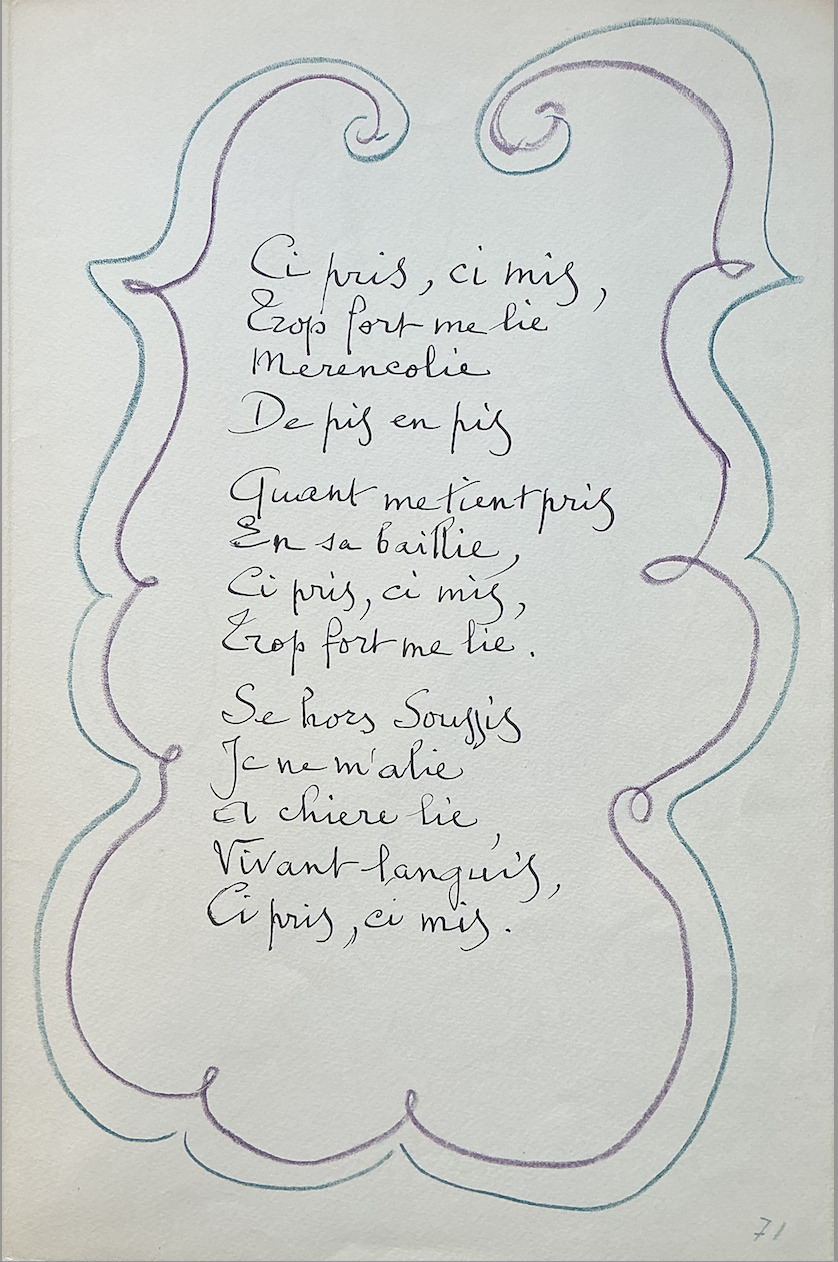 Ci pris, ci mis,
Trop fort me lie
Merencolie
De pis en pis
Quant me tient pris
En sa baillie,
Ci pris, ci mis,
Trop fort me lie.
Se hors Soussis
Je ne m'alie
A chiere lie,
Vivant languis,
Ci pris, ci mis.
71